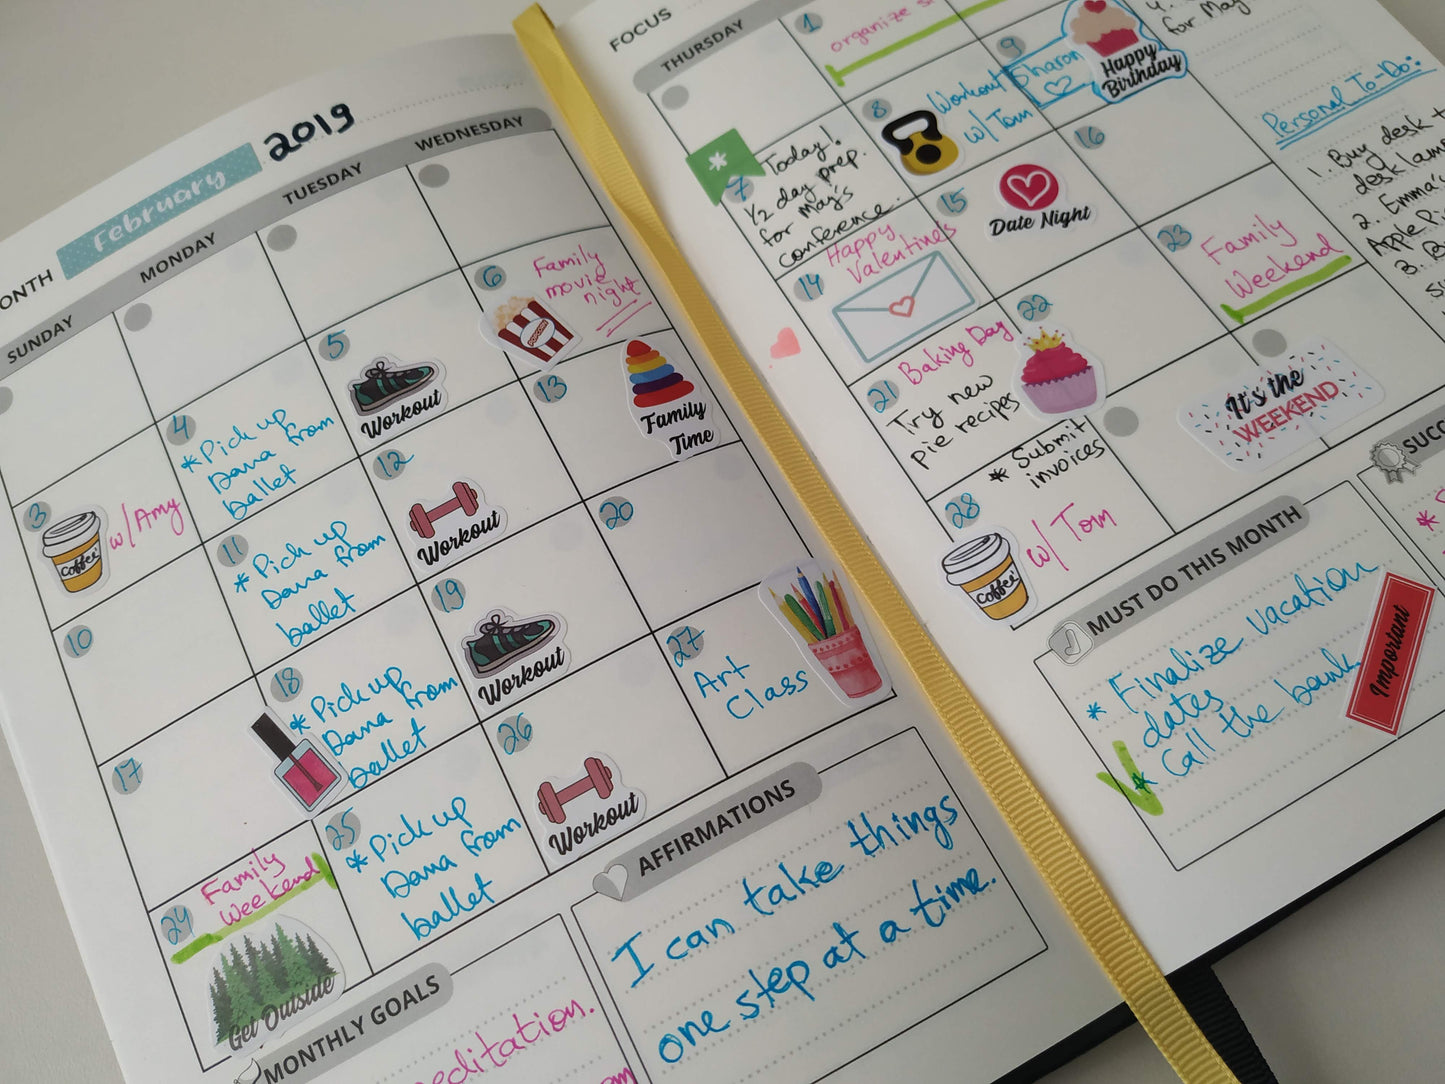 February
2019
SUNDAY
MONDAY
TUESDAY
WEDNESDAY
3
Coffee
w/ Amy
4
* Pick up
Dana from
ballet
5
Workout
6
Family
movie
night
10
11
* Pick up
Dana from
ballet
12
Workout
13
Family
Time
17
18
* Pick up
Dana from
ballet
19
Workout
20
24
Family
Weekend
Get Outside
25
* Pick up
Dana from
ballet
26
Workout
27
Art
Class
MONTHLY GOALS
AFFIRMATIONS
I can take things
one step at a time.
FOCUS
THURSDAY
1
organize
7
* Today!
1/2 day prep.
for May's
conference.
8
Workout
w/ Tom
9
Sharon
Happy
Birthday
14
Happy
Valentines
15
Date Night
16
21
Baking Day
Try new
pie recipes
22
23
Family
Weekend
28
* Submit
invoices
Coffee
w/ Tom
It's the
WEEKEND
for May
Personal To-Do:
1. Buy desk
desk lamp
2. Emma's
Apple
3.
MUST DO THIS MONTH
* Finalize vacation
dates
* Call the bank
Important